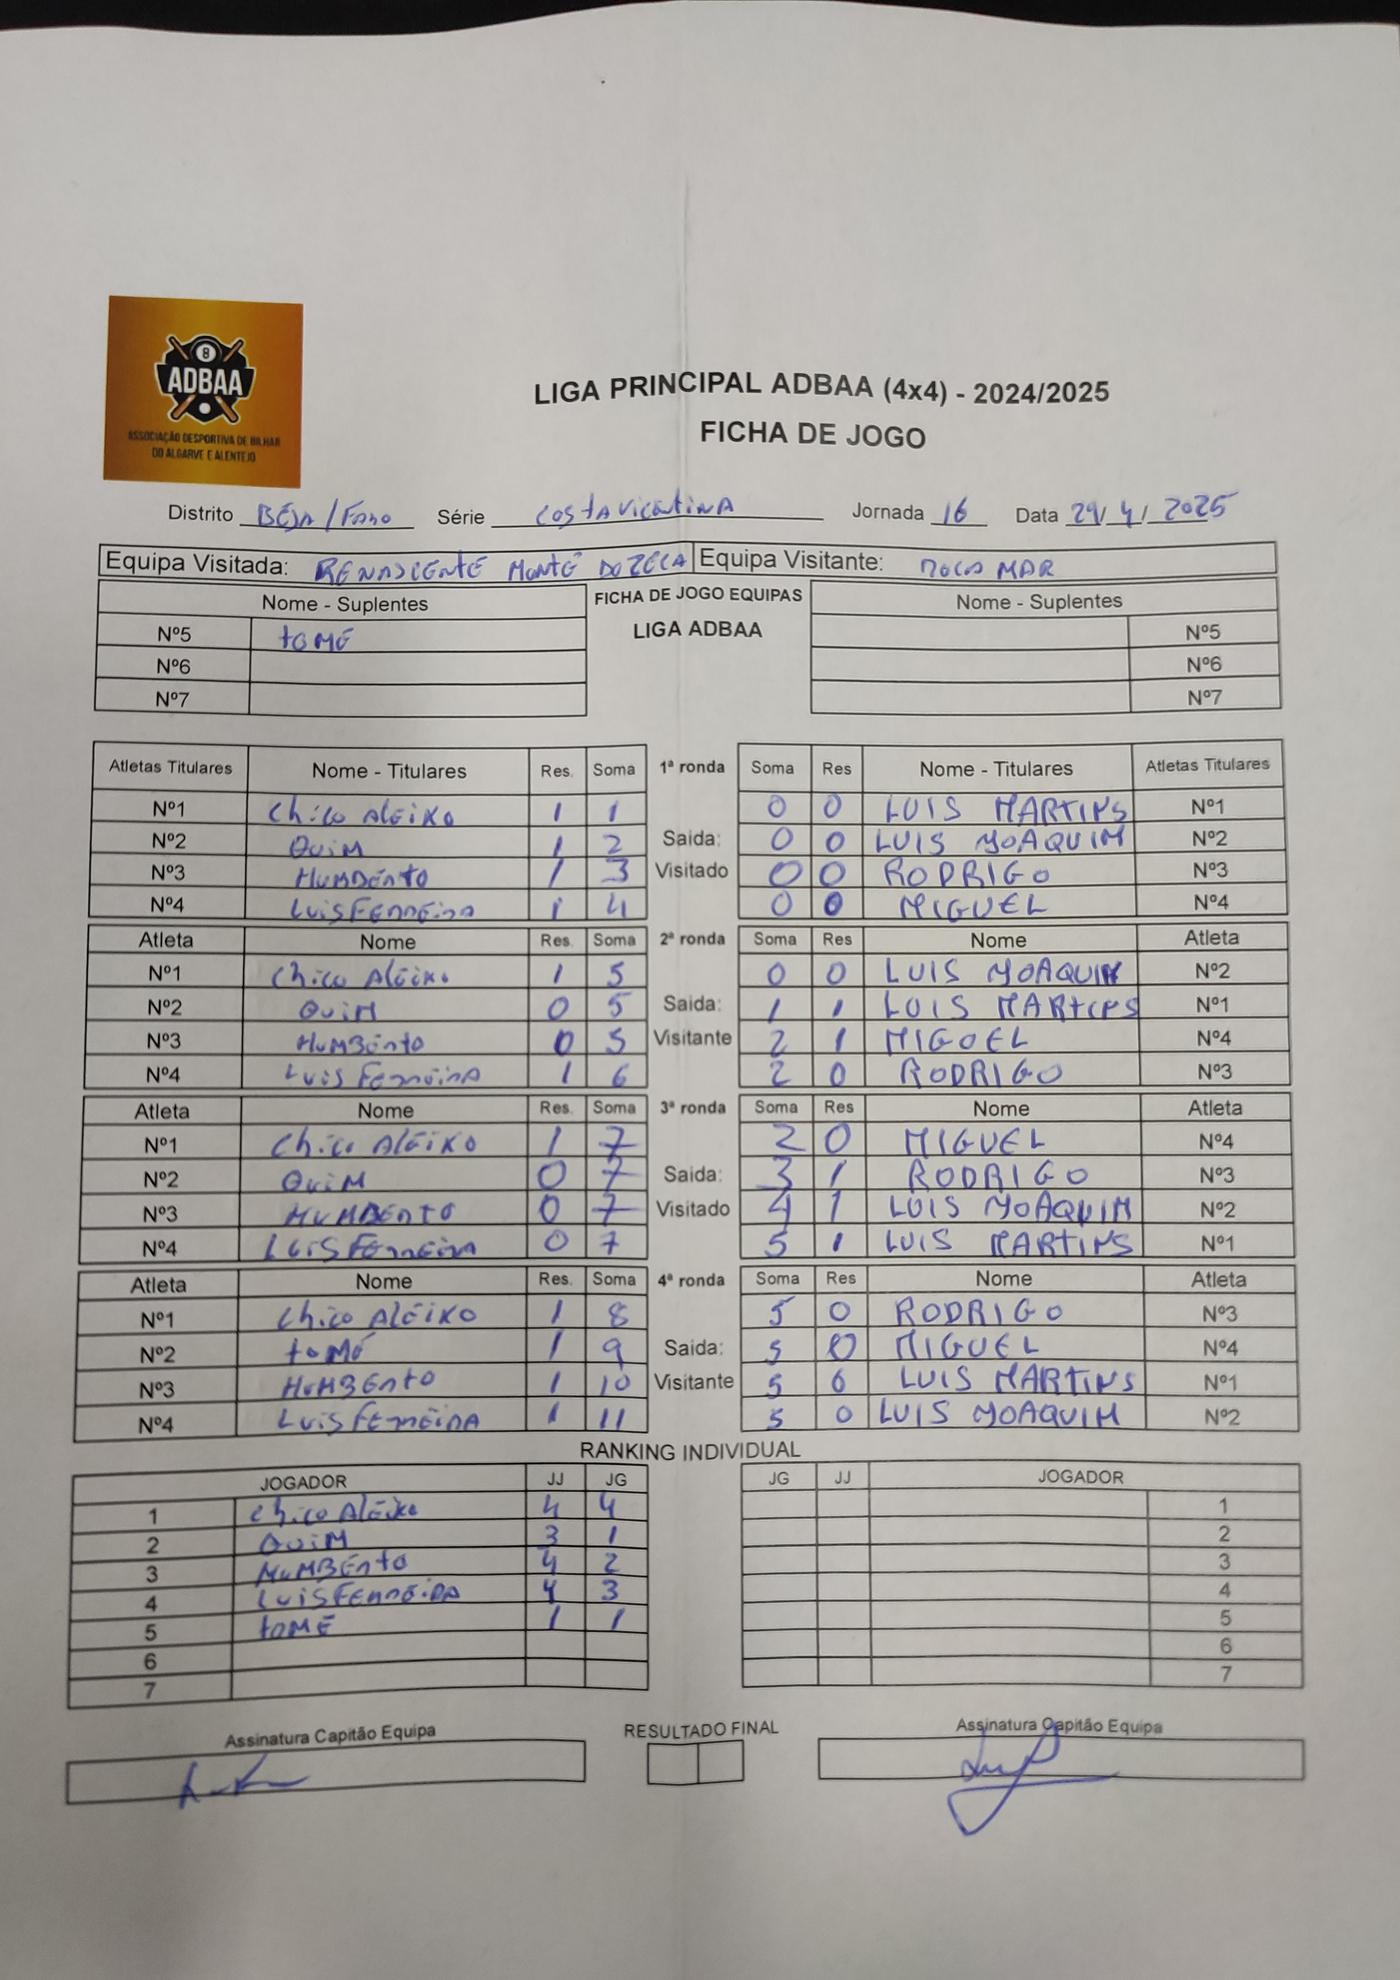 8
ADBAA
ASSOCIAÇÃO DESPORTIVA DE BILHAR
DO ALGARVE E ALENTEJO
LIGA PRINCIPAL ADBAA (4x4) - 2024/2025
FICHA DE JOGO
Distrito BÉJA/FARO Série COSTA VICENTINA Jornada 16 Data 29/4/2025
Equipa Visitada: RENASCENTE MONTE DO ZECA Equipa Visitante: MAR
Nome - Suplentes FICHA DE JOGO EQUIPAS Nome - Suplentes
Nº5 TOMÉ LIGA ADBAA Nº5
Nº6 Nº6
Nº7 Nº7
Atletas Titulares Nome - Titulares Res. Soma 1ª ronda Soma Res Nome - Titulares Atletas Titulares
Nº1 Chico Aleixo 1 1 0 0 LUIS MARTINS Nº1
Nº2 QUIM 1 2 Saida: 0 0 LUIS JOAQUIM Nº2
Nº3 HUMBERTO 1 3 Visitado 0 0 RODRIGO Nº3
Nº4 LUIS FERREIRA 1 4 0 0 MIGUEL Nº4
Atleta Nome Res. Soma 2ª ronda Soma Res Nome Atleta
Nº1 Chico Aleixo 1 5 0 0 LUIS JOAQUIM Nº2
Nº2 QUIM 0 5 Saida: 1 1 LUIS MARTINS Nº1
Nº3 HUMBERTO 0 5 Visitante 2 1 MIGUEL Nº4
Nº4 LUIS FERREIRA 1 6 2 0 RODRIGO Nº3
Atleta Nome Res. Soma 3ª ronda Soma Res Nome Atleta
Nº1 Chico Aleixo 1 7 2 0 MIGUEL Nº4
Nº2 QUIM 0 7 Saida: 3 1 RODRIGO Nº3
Nº3 HUMBERTO 0 7 Visitado 4 1 LUIS JOAQUIM Nº2
Nº4 LUIS FERREIRA 0 7 5 1 LUIS MARTINS Nº1
Atleta Nome Res. Soma 4ª ronda Soma Res Nome Atleta
Nº1 Chico Aleixo 1 8 5 0 RODRIGO Nº3
Nº2 TOMÉ 1 9 Saida: 5 0 MIGUEL Nº4
Nº3 HUMBERTO 1 10 Visitante 5 0 LUIS MARTINS Nº1
Nº4 LUIS FERREIRA 1 11 5 0 LUIS JOAQUIM Nº2
RANKING INDIVIDUAL
JOGADOR JJ JG JG JJ JOGADOR
1 Chico Aleixo 4 4 1
2 QUIM 3 1 2
3 HUMBERTO 4 2 3
4 LUIS FERREIRA 4 3 4
5 TOMÉ 1 1 5
6 6
7 7
Assinatura Capitão Equipa RESULTADO FINAL Assinatura Capitão Equipa